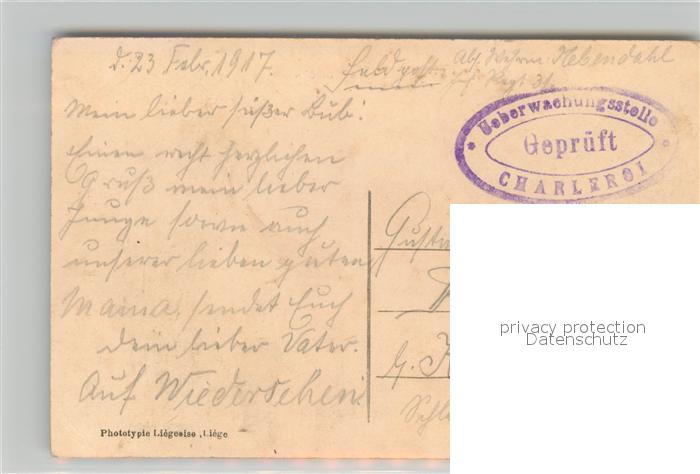 d. 23 Febr. 1917.
Feldpost
Hebendahl
Regt. 31.
Mein lieber süßer Bub!
Einen recht herzlichen
Gruß mein lieber
Junge sowie auch
unserer lieben guten
Mama, sendet Euch
dein lieber Vater.
Auf Wiedersehen!
Ueberwachungsstelle
Geprüft
CHARLEROI
privacy protection
Datenschutz
Phototypie Liégeoise, Liége